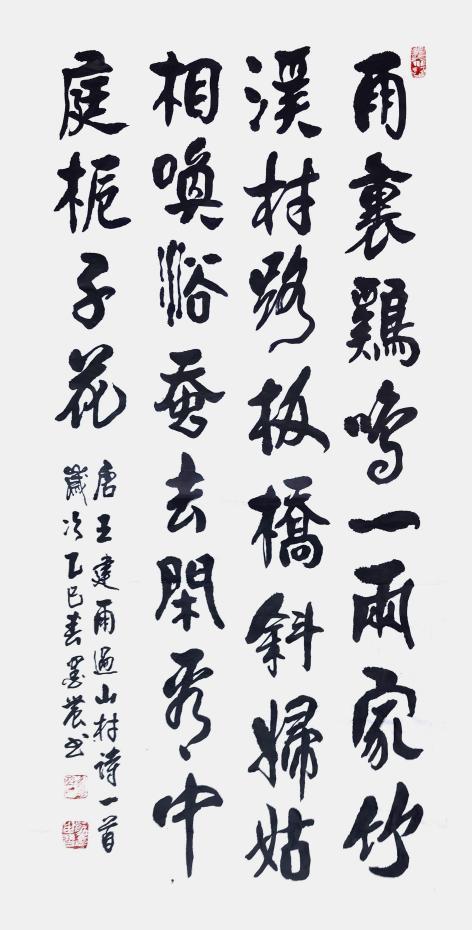 雨裏鷄鳴一兩家竹
溪村路板橋斜婦姑
相喚浴蚕去閑看中
庭栀子花
唐王建雨過山村詩一首
歲次乙巳春墨農书